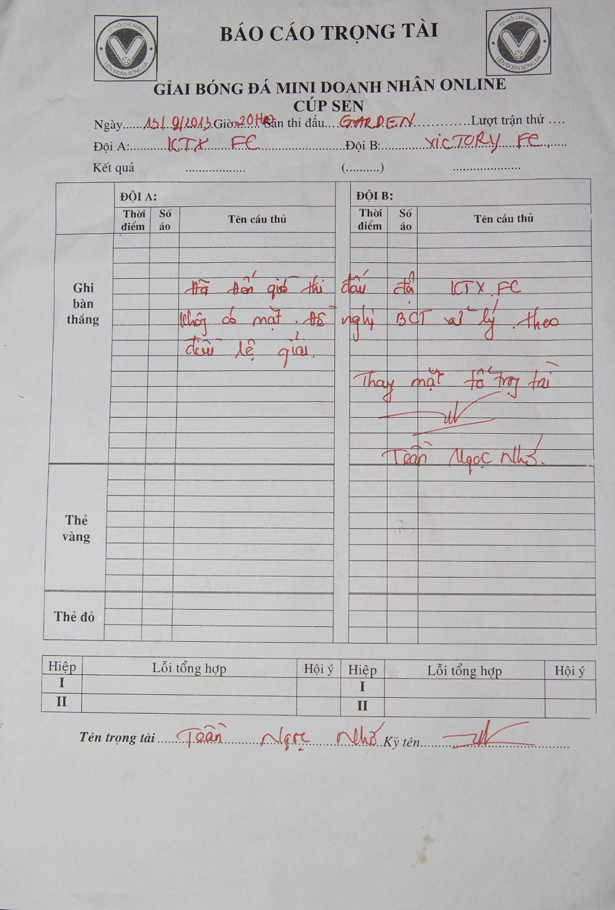 TP HỒ CHÍ MINH
LIÊN ĐOÀN BÓNG ĐÁ
BÁO CÁO TRỌNG TÀI
TP HỒ CHÍ MINH
LIÊN ĐOÀN BÓNG ĐÁ
GIẢI BÓNG ĐÁ MINI DOANH NHÂN ONLINE
CÚP SEN
Ngày......13/9/2013.Giờ:20H00 Sân thi đấu...GARDEN.........Lượt trận thứ ....
Đội A:......KTX FC............ Đội B:......VICTORY FC......
Kết quả .................. (..........) .....................
ĐỘI A: ĐỘI B:
Thời điểm Số áo Tên cầu thủ Thời điểm Số áo Tên cầu thủ
Ghi bàn thắng
Đã đến giờ thi đấu đội KTX.FC
không có mặt. Đề nghị BCT xử lý. theo
điều lệ giải.
Thay mặt tổ trọng tài
Trần Ngọc Nhớ.
Thẻ vàng
Thẻ đỏ
Hiệp Lỗi tổng hợp Hội ý Hiệp Lỗi tổng hợp Hội ý
I I
II II
Tên trọng tài ....Trần Ngọc Nhớ Ký tên..........................